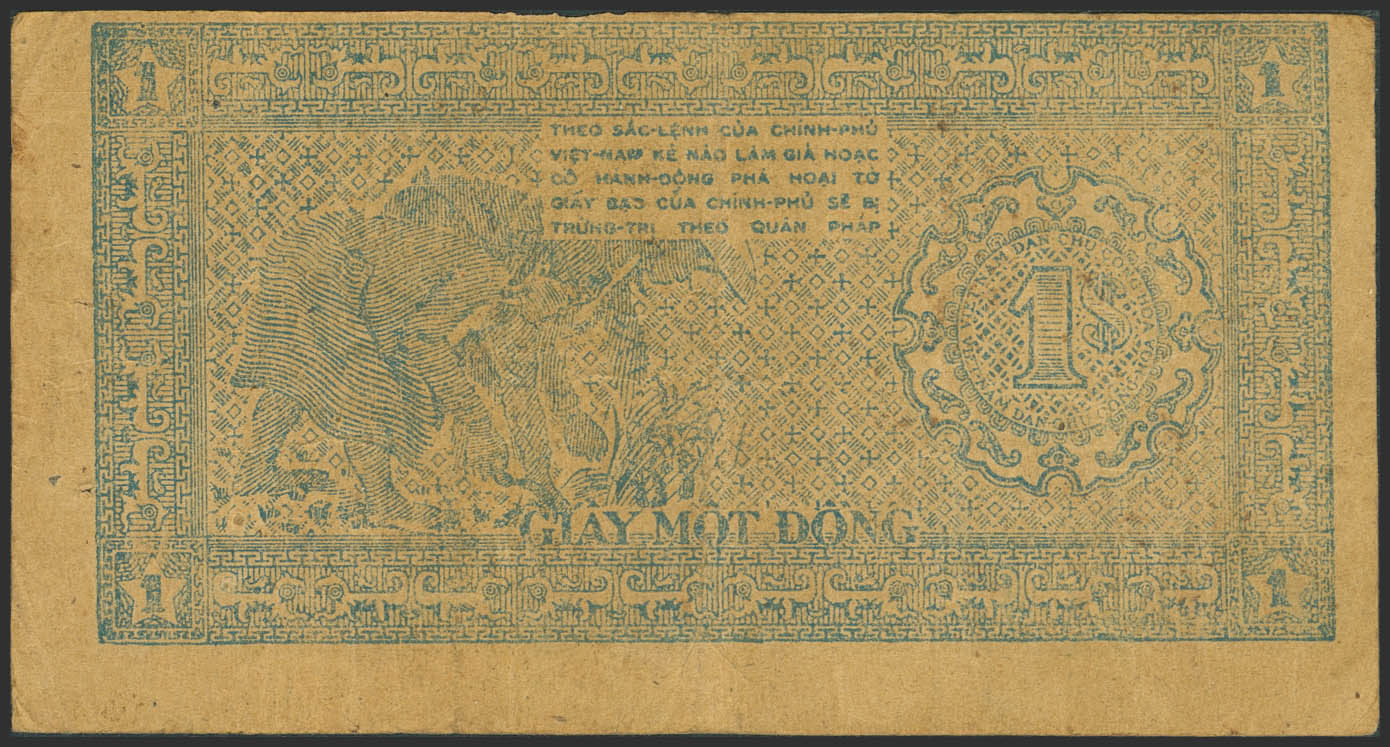 1 1
THEO SẮC-LỆNH CỦA CHÍNH-PHỦ
VIỆT-NAM KẺ NÀO LÀM GIẢ HOẶC
CÓ HÀNH-ĐỘNG PHÁ HOẠI TỜ
GIẤY BẠC CỦA CHÍNH-PHỦ SẼ BỊ
TRỪNG-TRỊ THEO QUÂN PHÁP
VIỆT-NAM DÂN CHỦ CỘNG HÒA
1$
GIẤY MỘT ĐỒNG
1 1